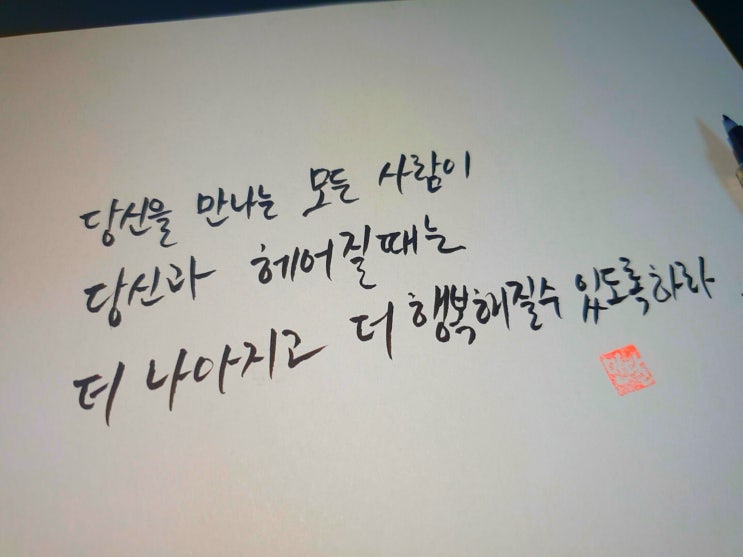 당신을 만나는 모든 사람이
당신과 헤어질때는
더 나아지고 더 행복해질수 있도록하라